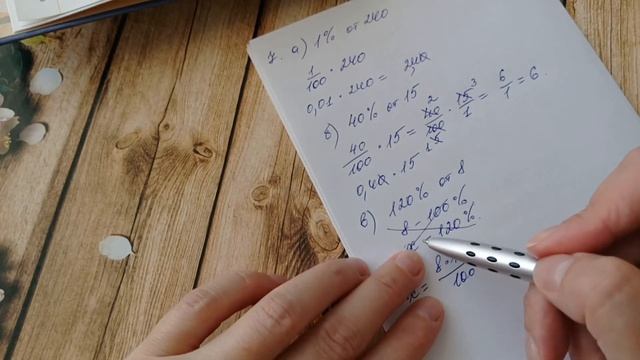 7. а) 1% от 240
1/100 · 240
0,01 · 240 = 240
б) 40% от 15
40/100 · 15 = 40 2/100 · 15 3/1 = 6/1 = 6.
0,40 · 15
в) 120% от 8
8 - 100%
x - 120%.
x = 8 /100